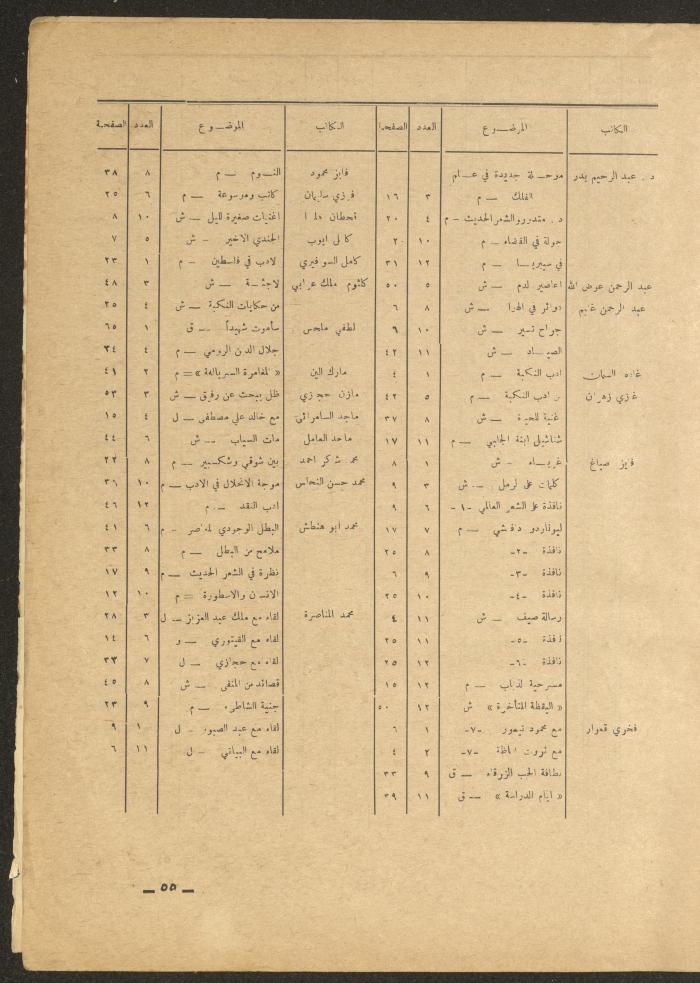 الكاتب الموضوع العدد الصفحة
د. عبد الرحيم بدر مرحلة جديدة في عالم
الفلك ــ م ٣ ١٦
د. مندور والشعر الحديث ــ م ٤ ٢٠
جولة في الفضاء ــ م ١٠ ٢
في سيبريا ــ م ١٢ ٣١
عبد الرحمن عوض الله اعاصير لدم ــ ش ٥ ٥٠
عبد الرحمن غنيم دوائر في الهوا ــ ش ٨ ٦
جراح تسير ــ ش ١٠ ٩
الصياد ــ ش ١١ ٤٢
غاده السمان ادب النكبة ــ م ١ ٤
غازي زهران من ادب النكبة ــ م ٥ ٤٢
اغنية للحياة ــ ش ٨ ٣٧
شناشيل ابنة الجلبي ــ م ١١ ١٧
فايز صياغ غرباء ــ ش ١ ٨
كلمات على الرمل ــ ش ٣ ٩
نافذة على الشعر العالمي -١- ٦ ٩
ليوناردو دافنشي ــ م ٧ ١٧
نافذة -٢- ٨ ٢٥
نافذة -٣- ٩ ٦
نافذة -٤- ١٠ ٢٥
رسالة صيف ــ ش ١١ ٤
نافذة -٥- ١١ ٢٥
نافذة -٦- ١٢ ٢٥
مسرحية لذباب ــ م ١٢ ١٥
« اليقظة المتأخرة » ش ١٢ ٥٠
فخري قعوار مع محمود تيمور -٧- ١ ٦
مع ثروت اباظة -٧- ٢ ٤
بطاقة الحب الزرقاء ــ ق ٩ ٣٣
« ايام الدراسة » ــ ق ١١ ٣٩
الكاتب الموضوع العدد الصفحة
فايز محمود النوم ــ م ٨ ٣٨
فوزي سليمان كاتب وموسوعة ــ م ٦ ٢٥
قحطان اغنيات صغيرة لليل ــ ش ١٠ ٨
كامل ايوب الجندي الاخير ــ ش ٥ ٧
كامل السوافيري الادب في فلسطين ــ م ١ ٢٣
كلثوم ملك عرابي لاجئة ــ ش ٣ ٤٨
من حكايات النكبة ــ ش ٤ ٢٥
لطفي ملحس سأموت شهيداً ــ ق ١ ٦٥
جلال الدين الرومي ــ م ٤ ٣٤
مارك الين « المغامرة السريالية » ــ م ٢ ٤١
مازن حجازي ظل يبحث عن رفيق ــ ش ٣ ٥٣
ماجد السامرائي مع خالد علي مصطفى ــ ل ٤ ١٥
ماجد العامل مات السياب ــ ش ٦ ٤٤
محمد شاكر احمد بين شوقي وشكسبير ــ م ٨ ٢٢
محمد حسن النحاس موجة الانحلال في الادب ــ م ١٠ ٣٦
ادب النقد ــ م ١٢ ٤٦
محمد ابو هنطش البطل الوجودي المعاصر ــ م ٦ ٤١
ملامح من البطل ــ م ٨ ٣٣
نظرة في الشعر الحديث ــ م ٩ ١٧
الانسان والاسطورة ــ م ١٠ ١٢
محمد المناصرة لقاء مع ملك عبد العزيز ــ ل ٣ ٢٨
لقاء مع الفيتوري ــ و ٦ ١٤
لقاء مع حجازي ــ ل ٧ ٣٣
قصائد من المنفى ــ ش ٨ ٤٥
جنية الشاطىء ــ م ٩ ٢٣
لقاء مع عبد الصبور ــ ل ١٠ ٩
لقاء مع البياتي ــ ل ١١ ٦
ــ ٥٥ ــ